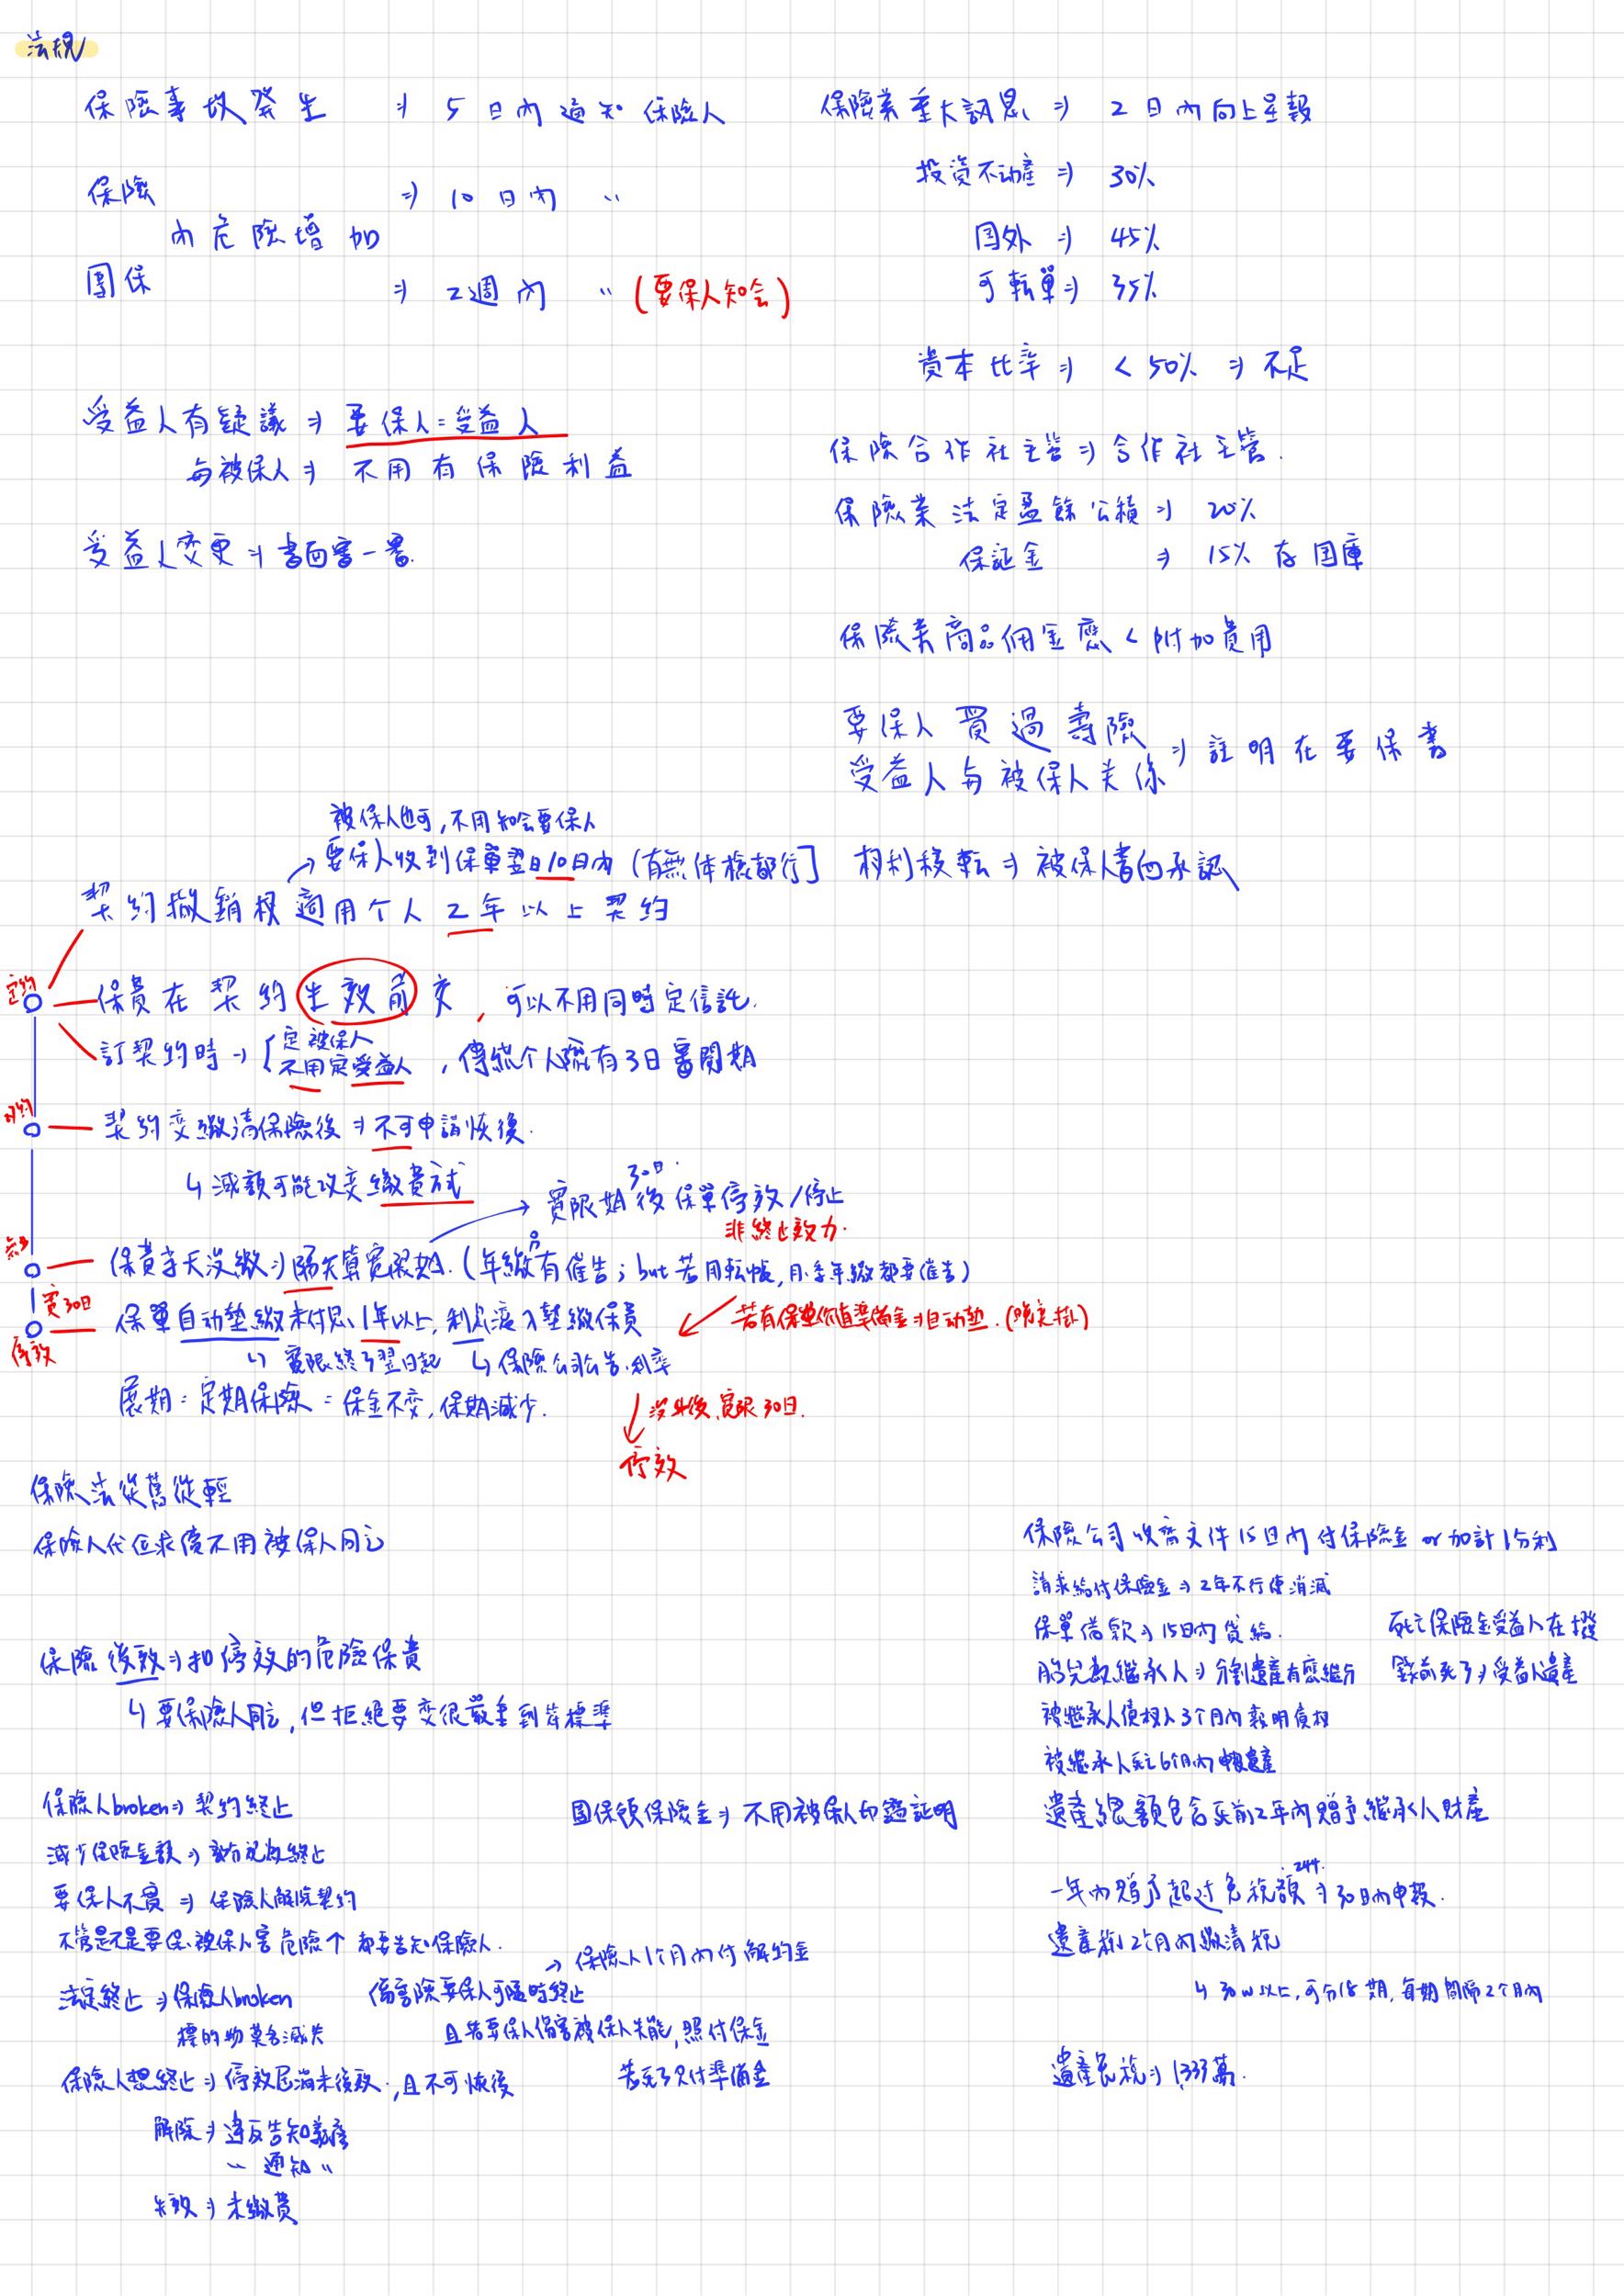 法規
保險事故發生 ⇒ 5日內通知保險人
保險 ⇒ 10日內 〃
內危險增加
團保 ⇒ 2週內 〃 (要保人知会)
受益人有疑議 ⇒ 要保人=受益人
与被保人 ⇒ 不用有保險利益
受益人変更 ⇒ 書面
保險業重大訊息 ⇒ 2日內向上呈報
投資不动產 ⇒ 30%
国外 ⇒ 45%
可転單 ⇒ 35%
資本比率 ⇒ < 50% ⇒ 不足
保險合作社主管 ⇒ 合作社主管.
保險業法定盈餘公積 ⇒ 20%
保証金 ⇒ 15% 存国庫
保險業商品佣金應 < 附加費用
要保人買過壽險
受益人与被保人关係 ⇒ 註明在要保書
被保人也可, 不用知会要保人
→ 要保人收到保單翌日10日內 (有無体檢都行]
权利移転 ⇒ 被保人書面承認
契約撤銷权適用个人2年以上契約
定約
保費在契約生效前交, 可以不用同時定信託.
訂契約時 → 定被保人
不用定受益人, 傳統个人險有3日審閱期
契約変繳清保險後 ⇒ 不可申請恢復.
↳ 減額可能改変繳費方式
→ 寬限期30日後保單停效/停止
非終止效力.
保費等天沒繳 ⇒ 隔天算寬限期. (年繳月有催告; but 若用転帳, 月季年繳都要催告)
寬30日
保單自动墊繳未付息1年以上, 利息滾入墊繳保費
若有保單价值準備金 ⇒ 自动墊.
停效
↳ 寬限終了翌日起 ↳ 保險公司公告利率
展期=定期保險=保金不変, 保期減少.
沒後, 寬限30日.
停效
保險法從舊從輕
保險人代位求償不用被保人同意
保險復效 ⇒ 扣停效的危險保費
↳ 要保險人同意, 但拒絕要变很嚴重到拒標準
保險人broken ⇒ 契約終止
減少保險金額 ⇒ 部分視為終止
要保人不實 ⇒ 保險人解除契約
不管是不是要保、被保人害危險个 都要告知保險人.
法定終止 ⇒ 保險人broken
標的物莫名滅失
保險人想終止 ⇒ 停效屆滿未復效, 且不可恢復
解除 ⇒ 違反告知義務
〃 通知 〃
失效 ⇒ 未繳費
團保領保險金 ⇒ 不用被保人印鑑証明
→ 保險人1个月內付解約金
傷害險要保人可隨時終止
且若要保人傷害被保人失能, 照付保金
若死了只付準備金
保險公司收齊文件15日內付保險金 or 加計1分利
請求給付保險金 ⇒ 2年不行使消滅
保單借款 ⇒ 15日內貸給.
胎兒為繼承人 ⇒ 分割遺產有應繼分
被繼承人債权人3个月內報明債权
被繼承人死亡6个月內申報遺產
遺產總額包含死前2年內贈予繼承人財產
死亡保險金受益人在撥
錢前死了 ⇒ 受益人遺產
一年內贈予超过免税額244. ⇒ 30日內申報.
遺產税2个月內繳清税
↳ 30w以上, 可分18期, 每期間隔2个月內
遺產免税 ⇒ 1,333萬.